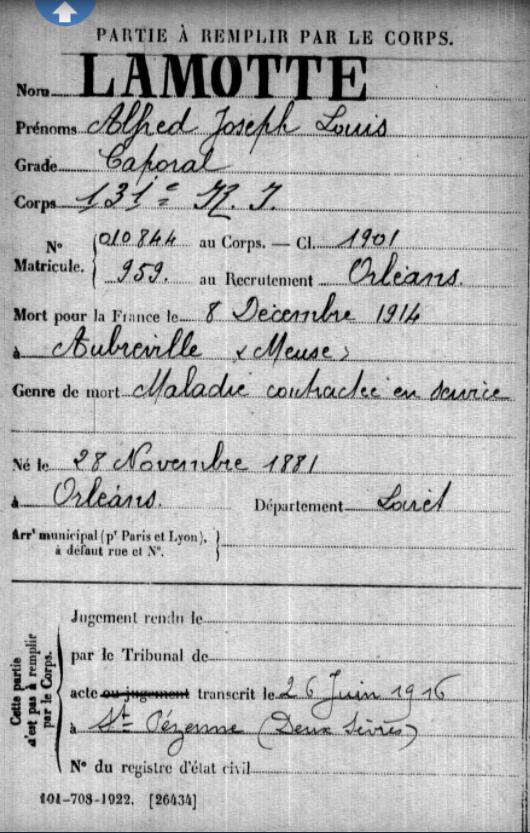 PARTIE À REMPLIR PAR LE CORPS.
Nom LAMOTTE
Prénoms Alfred Joseph Louis
Grade Caporal
Corps 131e R. I.
N° Matricule. { 010844 au Corps. — Cl. 1901
959. au Recrutement Orléans.
Mort pour la France le 8 Décembre 1914
à Aubréville (Meuse)
Genre de mort Maladie contractée en service
Né le 28 Novembre 1881
à Orléans. Département Loiret
Arrt municipal (pr Paris et Lyon), à défaut rue et N°. }
Cette partie n'est pas à remplir par le Corps.
Jugement rendu le
par le Tribunal de
acte ou jugement transcrit le 26 Juin 1916
à Ste Pézenne (Deux Sèvres)
N° du registre d'état civil
101-708-1922. [26434]